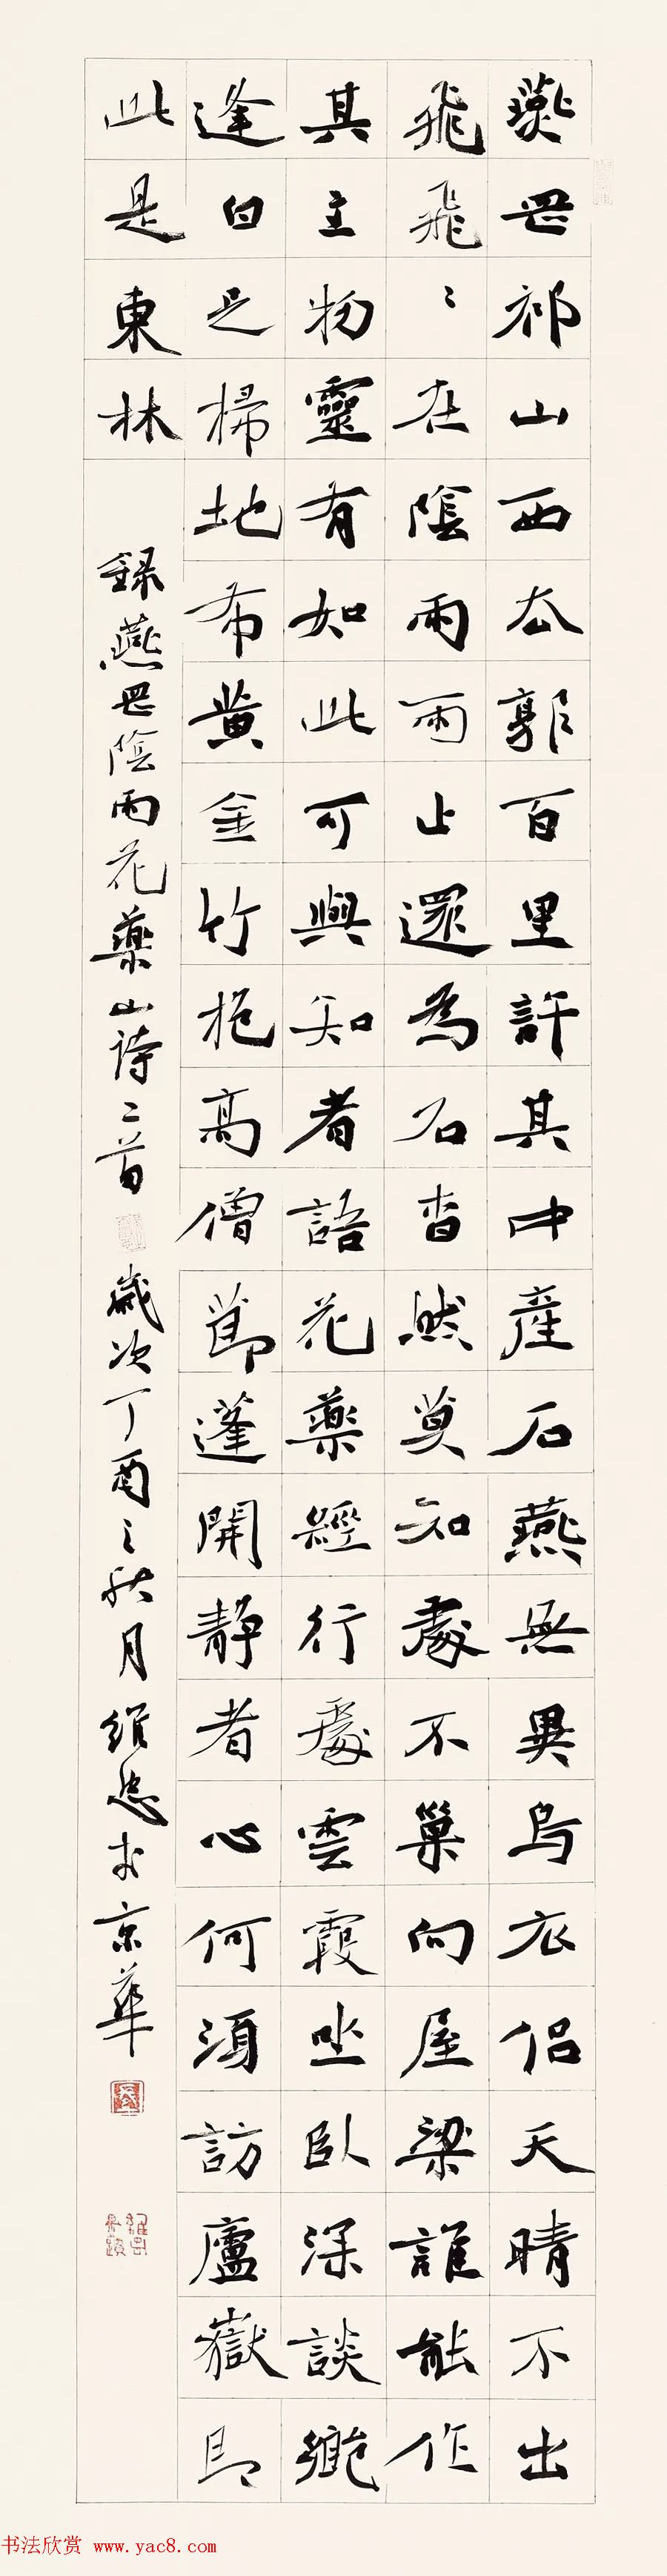 燕祁山西去郭百里許其中產石燕無異烏衣侣天晴不出
飛飛〻在陰雨雨止還為石杳然莫知處不巢向屋梁誰能作
其主物靈有如此可與知者語花藥經行處雲霞坐臥深談
逢白足掃地布黃金竹抱高僧節蓮開靜者心何須訪廬嶽即
此是東林
錄燕陰雨花藥山詩二首 歲次丁酉之秋月維忠於京華
书法欣赏 www.yac8.com